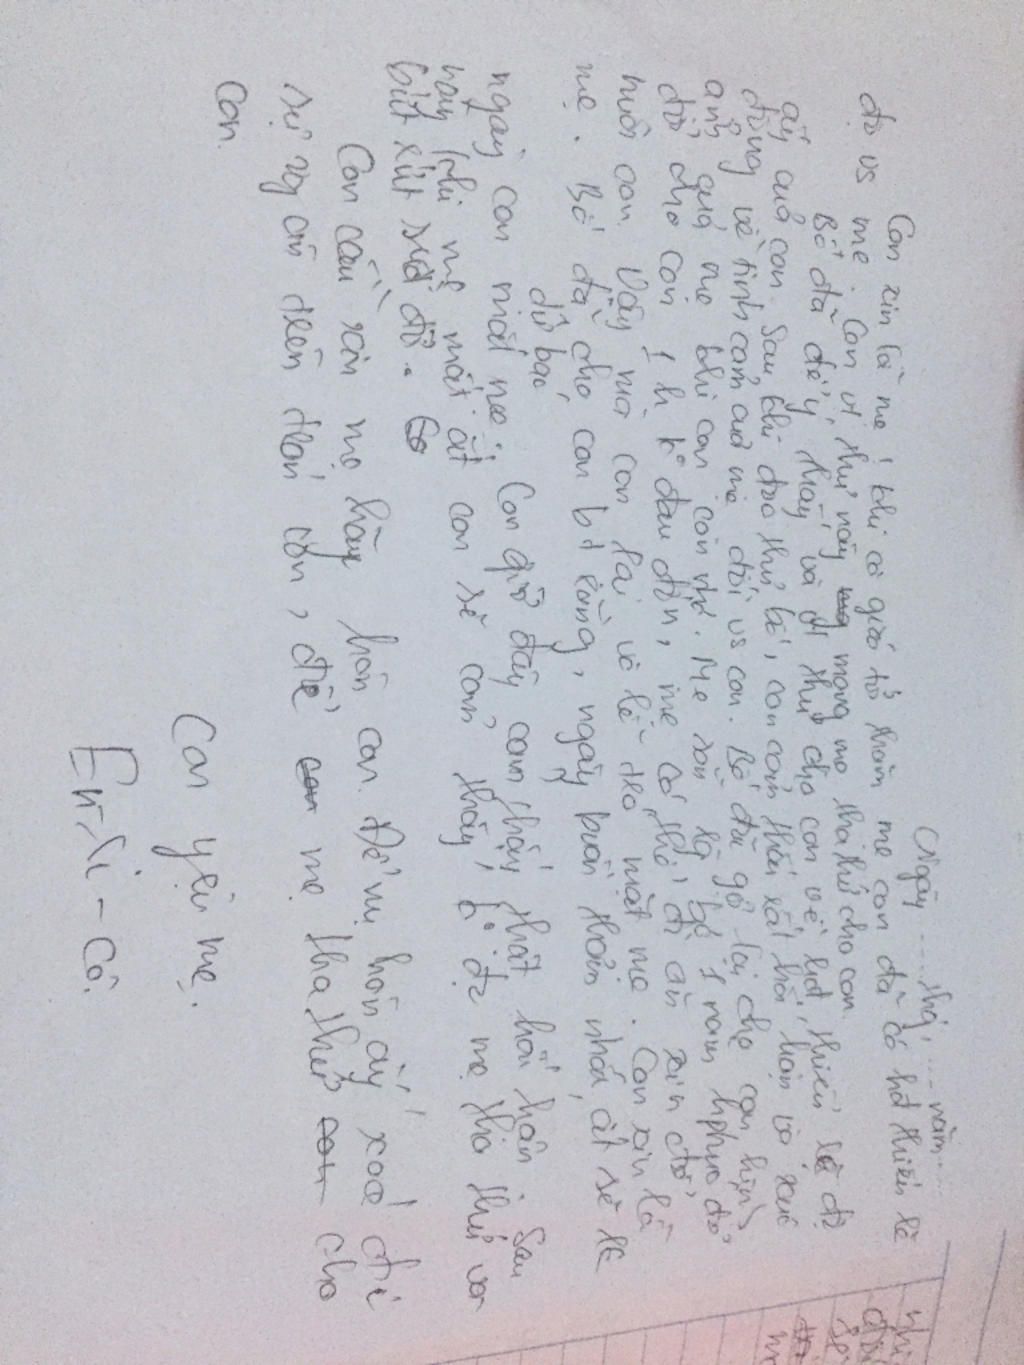 Ngày ..... thg, .... năm....
Con xin lỗi mẹ ! khi cô giáo tới thăm mẹ con đã có hđ thiếu lễ
độ vs mẹ. Con vt thư này mong mẹ tha thứ cho con.
Bố đã để ý thấy và vt thư cho con về hđ thiếu lễ độ
ấy của con. Sau khi đọc thư bố, con cảm thấy rất hối hận và xúc
động về tình cảm của mẹ đối vs con. Bố đã gợi lại cho con hình
ảnh quá mẹ khi con còn nhỏ. Mẹ sẵn bỏ 1 năm hphuc để
đổi cho con 1 h k° đau đớn, mẹ có thể đi ăn xin để
nuôi con. Vậy mà con lại vô lễ mặt mẹ. Con xin lỗi
mẹ. Bố đã cho con bt rằng, ngày buồn thảm nhất, ắt sẽ là
dự báo
ngày con mất mẹ. Con giờ đây cảm thấy thật hối hận. Sau
này khi mẹ mất ắt con sẽ cảm thấy k° đc mẹ tha thứ
Con cầu xin mẹ hãy hôn con. Để nụ hôn ấy xoá đi
sự vg ân trên trán con, để mẹ tha thứ cho
con.
Con yêu mẹ.
En-ri-cô.